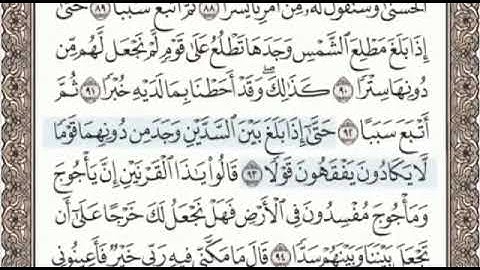 ٱلْحُسْنَىٰ وَسَنَقُولُ لَهُۥ مِنْ أَمْرِنَا يُسْرًا ٨٨ ثُمَّ أَتْبَعَ سَبَبًا ٨٩ حَتَّىٰٓ
إِذَا بَلَغَ مَطْلِعَ ٱلشَّمْسِ وَجَدَهَا تَطْلُعُ عَلَىٰ قَوْمٍ لَّمْ نَجْعَل لَّهُم مِّن
دُونِهَا سِتْرًا ٩٠ كَذَٰلِكَۖ وَقَدْ أَحَطْنَا بِمَا لَدَيْهِ خُبْرًا ٩١ ثُمَّ
أَتْبَعَ سَبَبًا ٩٢ حَتَّىٰٓ إِذَا بَلَغَ بَيْنَ ٱلسَّدَّيْنِ وَجَدَ مِن دُونِهِمَا قَوْمًا
لَّا يَكَادُونَ يَفْقَهُونَ قَوْلًا ٩٣ قَالُوا۟ يَٰذَا ٱلْقَرْنَيْنِ إِنَّ يَأْجُوجَ
وَمَأْجُوجَ مُفْسِدُونَ فِى ٱلْأَرْضِ فَهَلْ نَجْعَلُ لَكَ خَرْجًا عَلَىٰٓ أَن
تَجْعَلَ بَيْنَنَا وَبَيْنَهُمْ سَدًّا ٩٤ قَالَ مَا مَكَّنِّى فِيهِ رَبِّى خَيْرٌ فَأَعِينُونِى